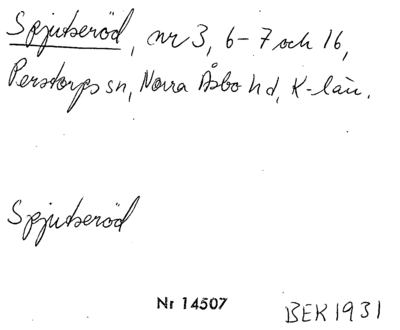 Spjutseröd, nr 3, 6-7 och 16,
Perstorps sn, Norra Åsbo hd, K-län.
Spjutseröd
Nr 14507
BEK 1931